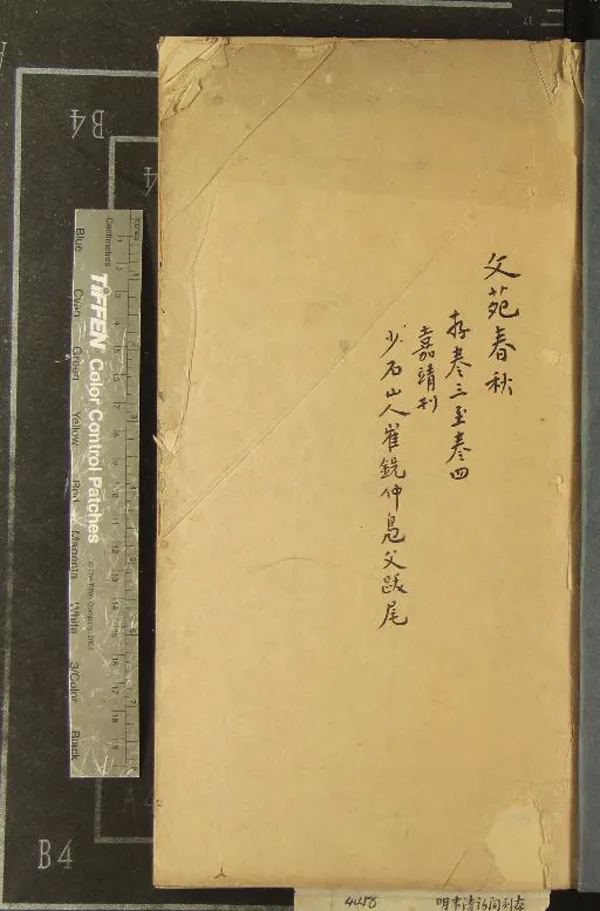 文苑春秋
存卷三至卷四
嘉靖刋
少石山人崔銑仲鳧父跋尾
B4
B4
TIFFEN Color Control Patches
© The Tiffen Company, 2007
Inches
Centimetres
Blue
Cyan
Green
Yellow
Red
Magenta
White
3/Color
Black
4458